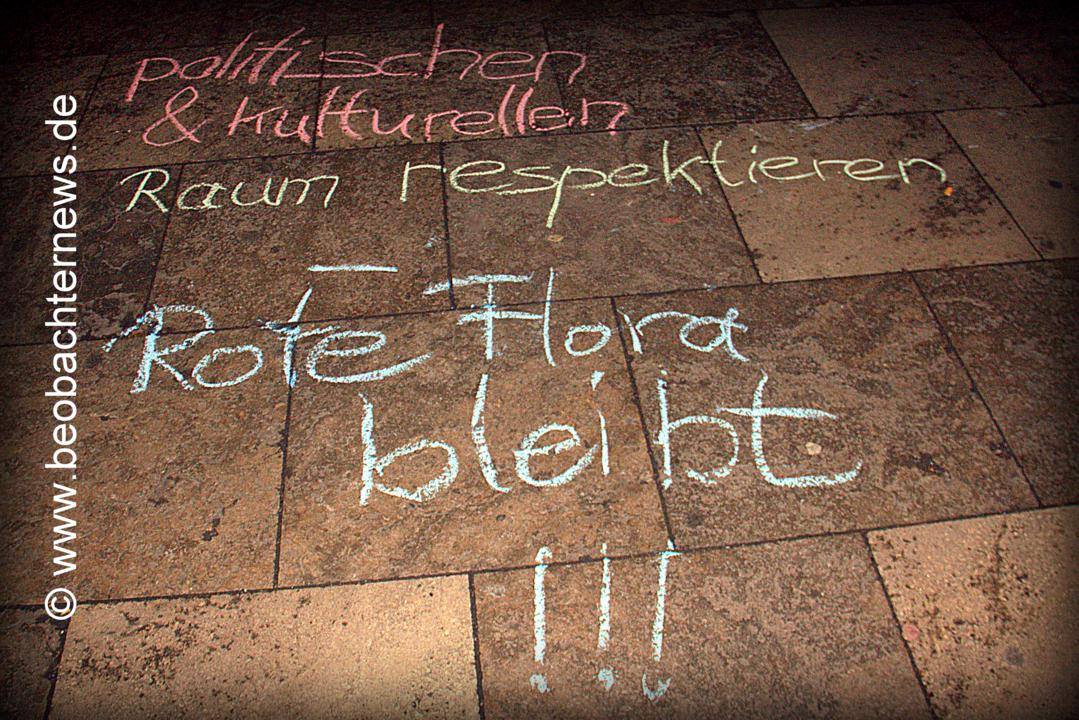 politischen
& kulturellen
Raum respektieren
Rote Flora
bleibt
!!!
© www.beobachternews.de